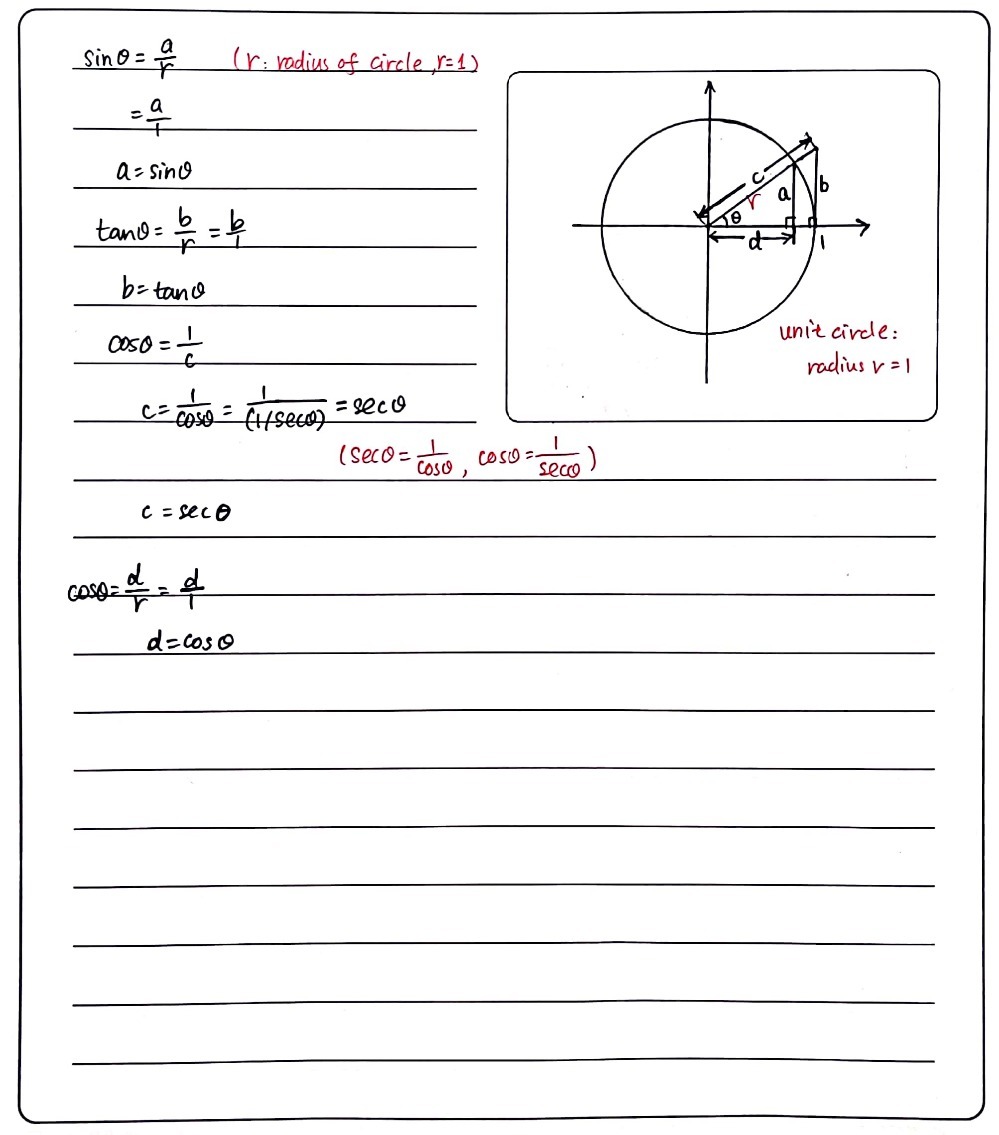 sinθ = a/r (r: radius of circle, r=1)
= a/1
a = sinθ
tanθ = b/r = b/1
b = tanθ
cosθ = 1/c
c = 1/cosθ = 1/(1/secθ) = secθ
(secθ = 1/cosθ, cosθ = 1/secθ)
c = secθ
cosθ = d/r = d/1
d = cosθ
c
r
a
b
θ
d
1
unit circle:
radius r = 1